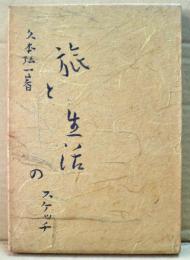 久本弘一著
旅と生活
のスケッチ